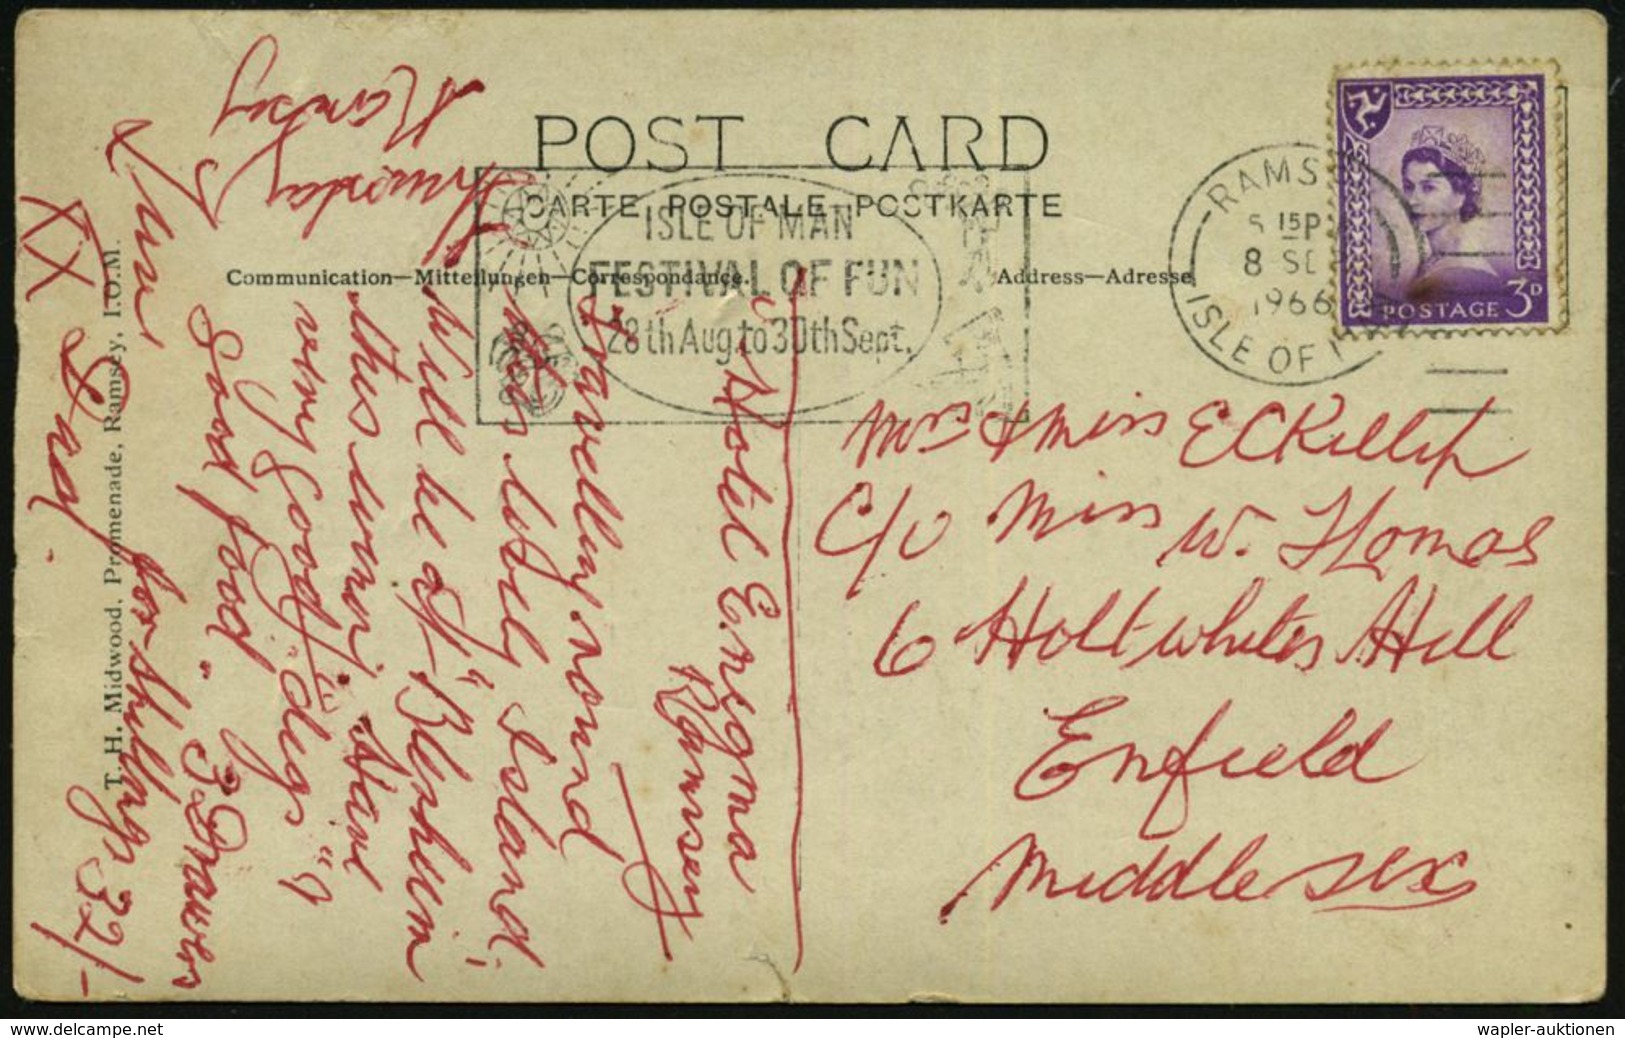 POST CARD
CARTE POSTALE POSTKARTE
Communication—Mitteilungen—Correspondance.
Address—Adresse
ISLE OF MAN
FESTIVAL OF FUN
28th Aug to 30th Sept.
RAMS
15P
8 SEP
1966
ISLE OF
POSTAGE 3D
Mrs & Miss E C Killip
C/o Miss W. Thomas
6 Holtwhites Hill
Enfield
Middlesex
"Hotel Enigma
Ramsey
Travelling round
this lovely Island,
Will be at "Blenheim
this evening. Have
very good digs "&
Good food."
3 Drawers
for shillings 32/-
XX Dad.
Thursday
T. H. Midwood, Promenade, Ramsey, I.O.M.
www.delcampe.net
wapler-auktionen